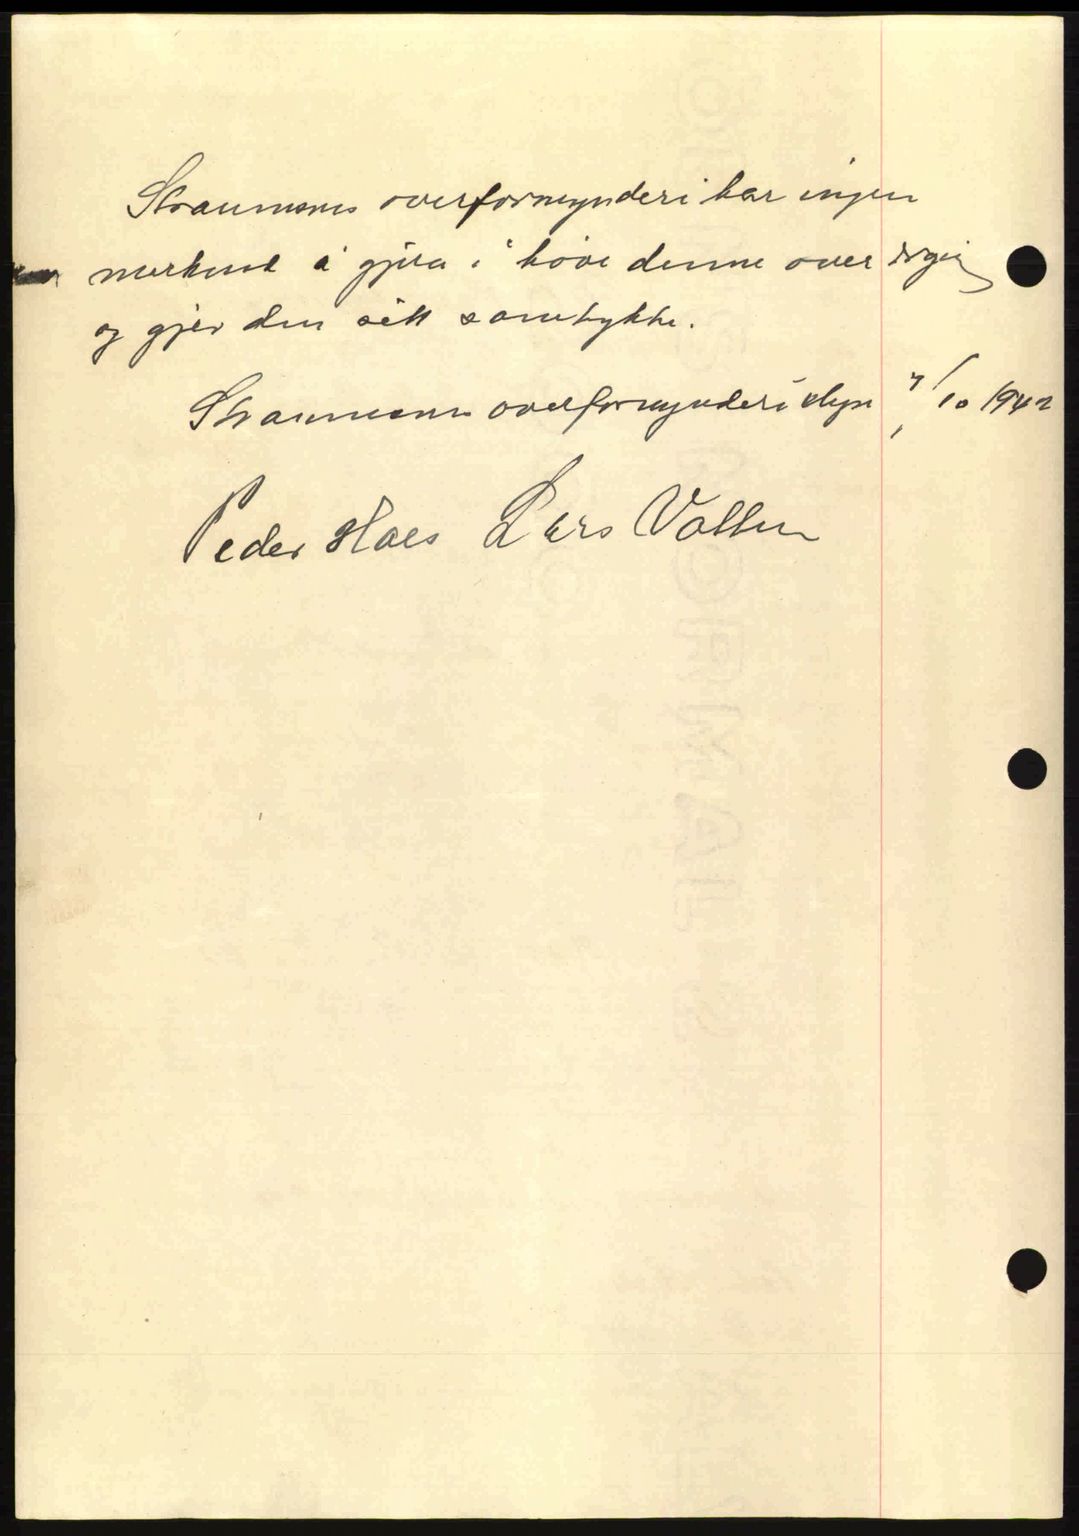 Straumsnes overformynderi har ingen
merknad å gjera i høve denne over
og gjev den sitt samtykke.
Straumsnes overformynderi 7/10 1942
Peder Hals Lars Vollen